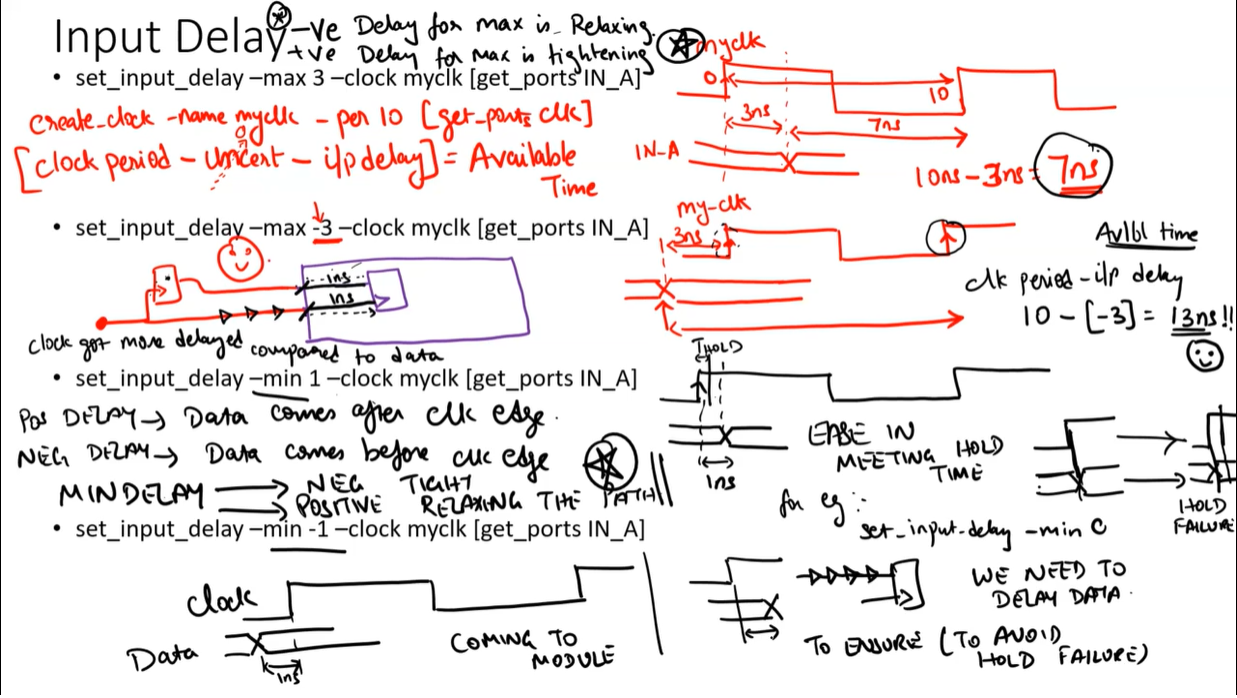 Input Delay
-ve Delay for max is Relaxing.
+ve Delay for Max is tightening
• set_input_delay –max 3 –clock myclk [get_ports IN_A]
create_clock -name myclk - per 10 [get_ports clk]
0
[clock period - Uncert - i/p delay] = Available
Time
myclk
0
10
3ns
7ns
IN-A
10ns - 3ns = 7ns
• set_input_delay –max -3 –clock myclk [get_ports IN_A]
1ns
1ns
clock got more delayed compared to data
my-clk
3ns
Avlbl time
clk period - i/p delay
10 - [-3] = 13ns!!
• set_input_delay –min 1 –clock myclk [get_ports IN_A]
POS DELAY → Data comes after clk edge.
NEG DELAY → Data comes before clk edge
MINDELAY → NEG TIGHT
→ POSITIVE RELAXING THE PATH
THOLD
1ns
EASE IN
MEETING HOLD
TIME
HOLD
FAILURE
for eg:
set_input_delay -min 0
• set_input_delay –min -1 –clock myclk [get_ports IN_A]
clock
Data
1ns
COMING TO
MODULE
WE NEED TO
DELAY DATA.
TO ENSURE (TO AVOID
HOLD FAILURE)